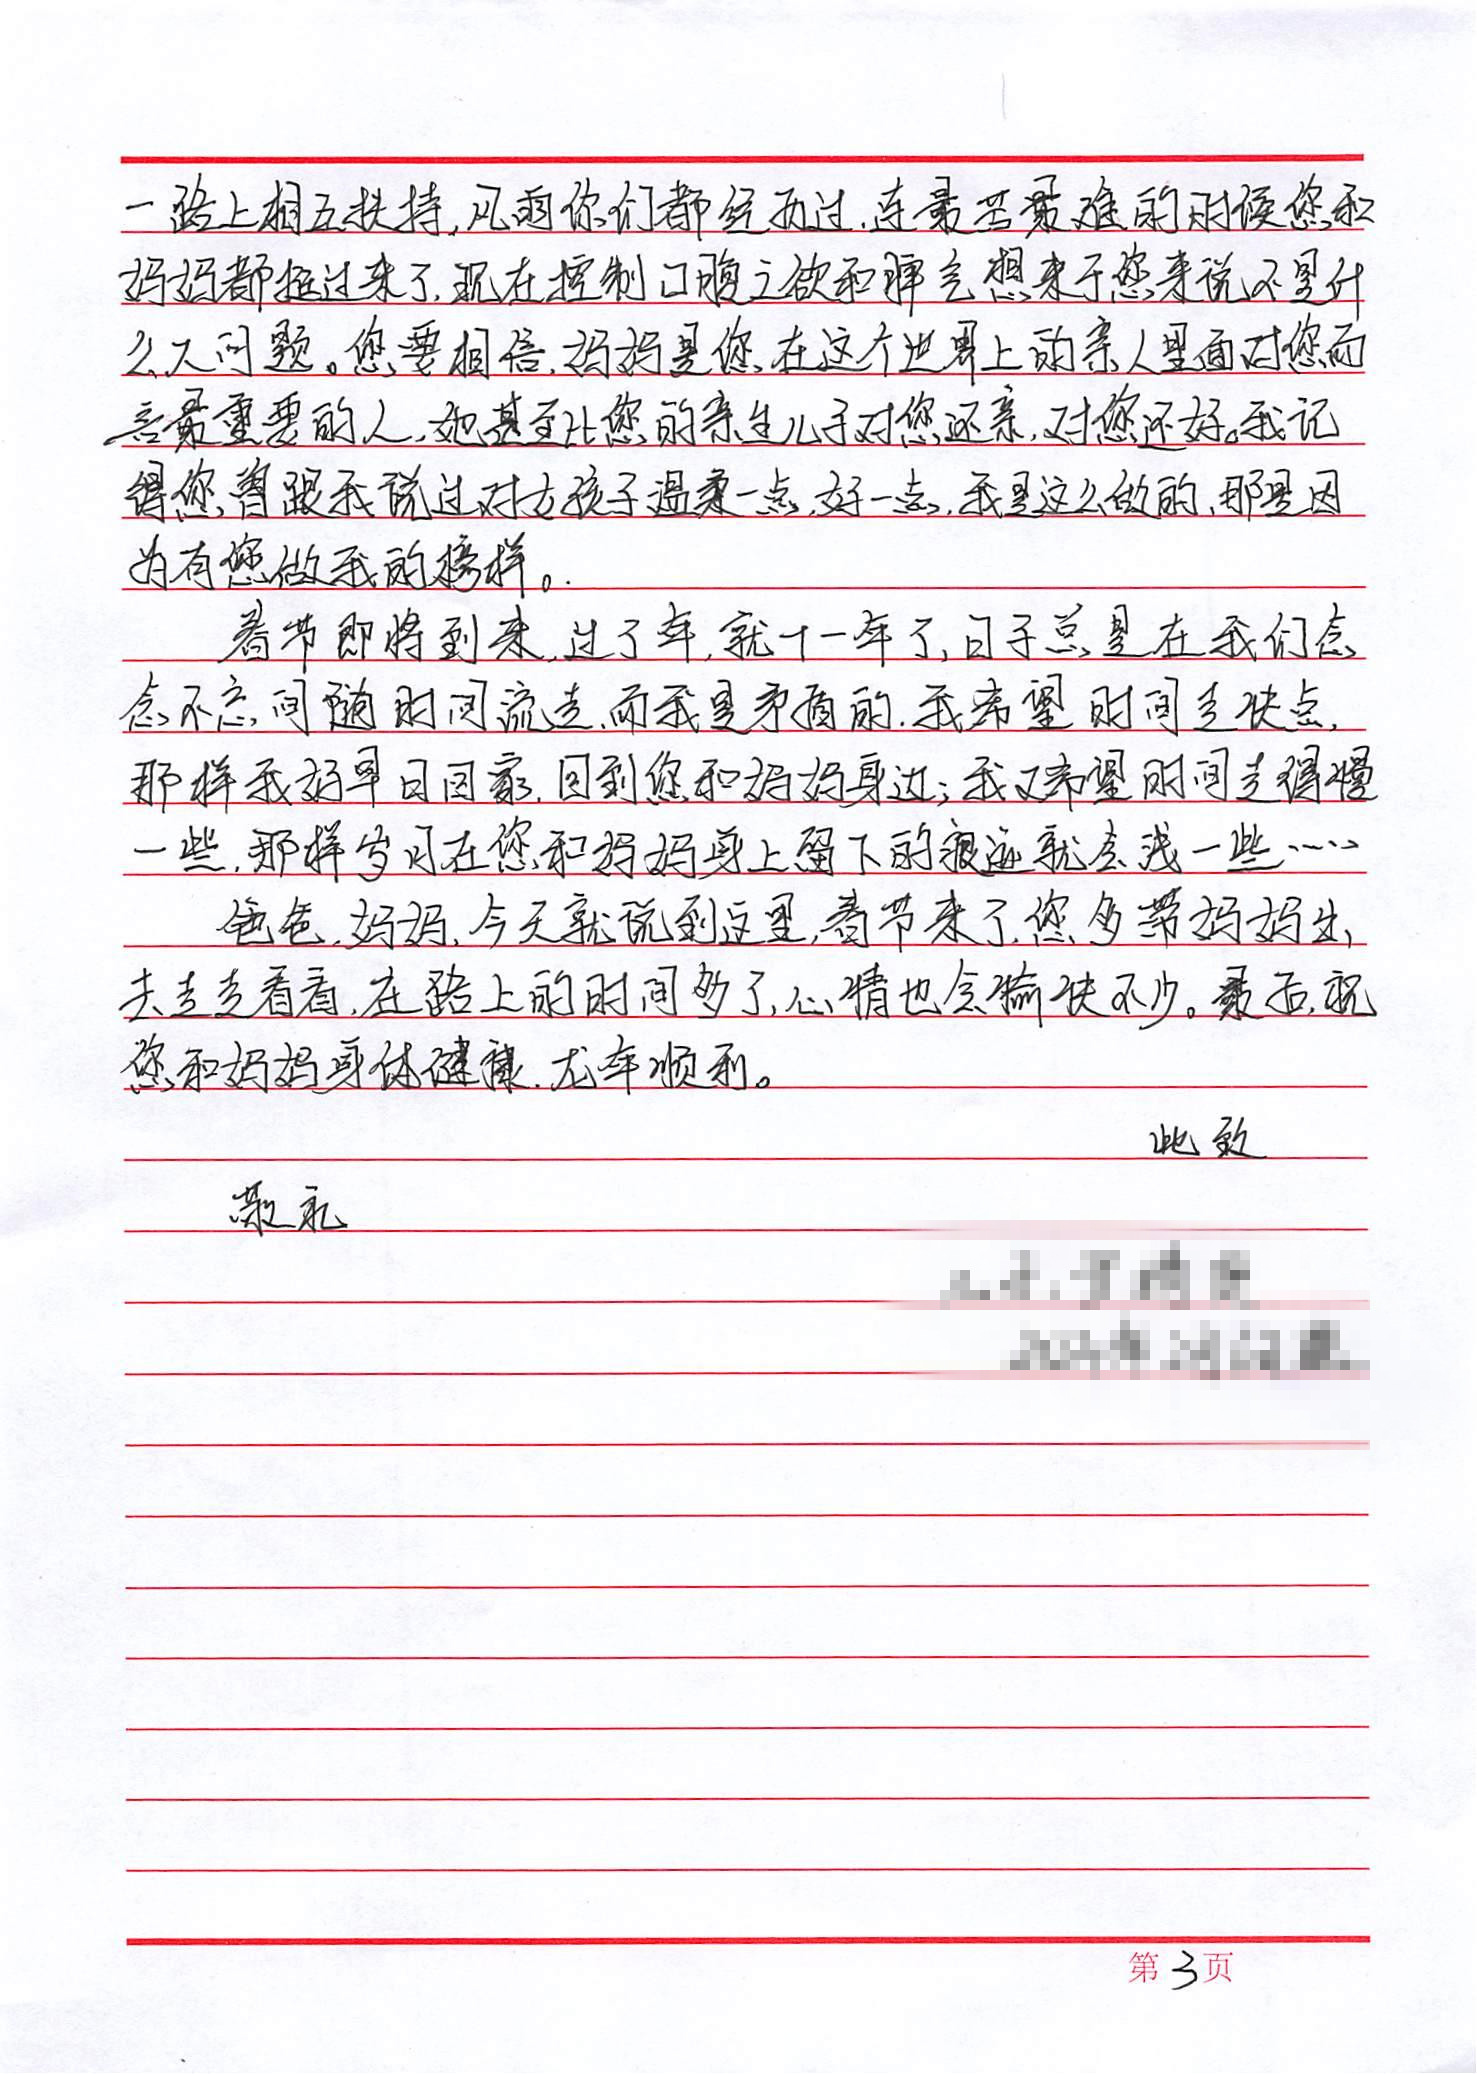 一路上相互扶持，风雨你们都经历过，连最苦最难的时候您和
妈妈都挺过来了，现在控制口腹之欲和脾气想来于您来说不是什
么大问题。您要相信，妈妈是您在这个世界上的亲人里面对您而
言最重要的人，她甚至比您的亲生儿子对您还亲，对您还好。我记
得您曾跟我说过对女孩子温柔一点，好一点，我是这么做的，那是因
为有您做我的榜样。
春节即将到来，过了年，就十一年了，日子总是在我们念
念不忘间随时间流走，而我是矛盾的，我希望时间走快点，
那样我好早日回家，回到您和妈妈身边；我又希望时间走得慢
一些，那样岁月在您和妈妈身上留下的痕迹就会浅一些……
爸爸，妈妈，今天就说到这里，春节来了，您多带妈妈出
去走走看看，在路上的时间多了，心情也会愉快不少。最后，祝
您和妈妈身体健康，龙年顺利。
此致
敬礼
第3页